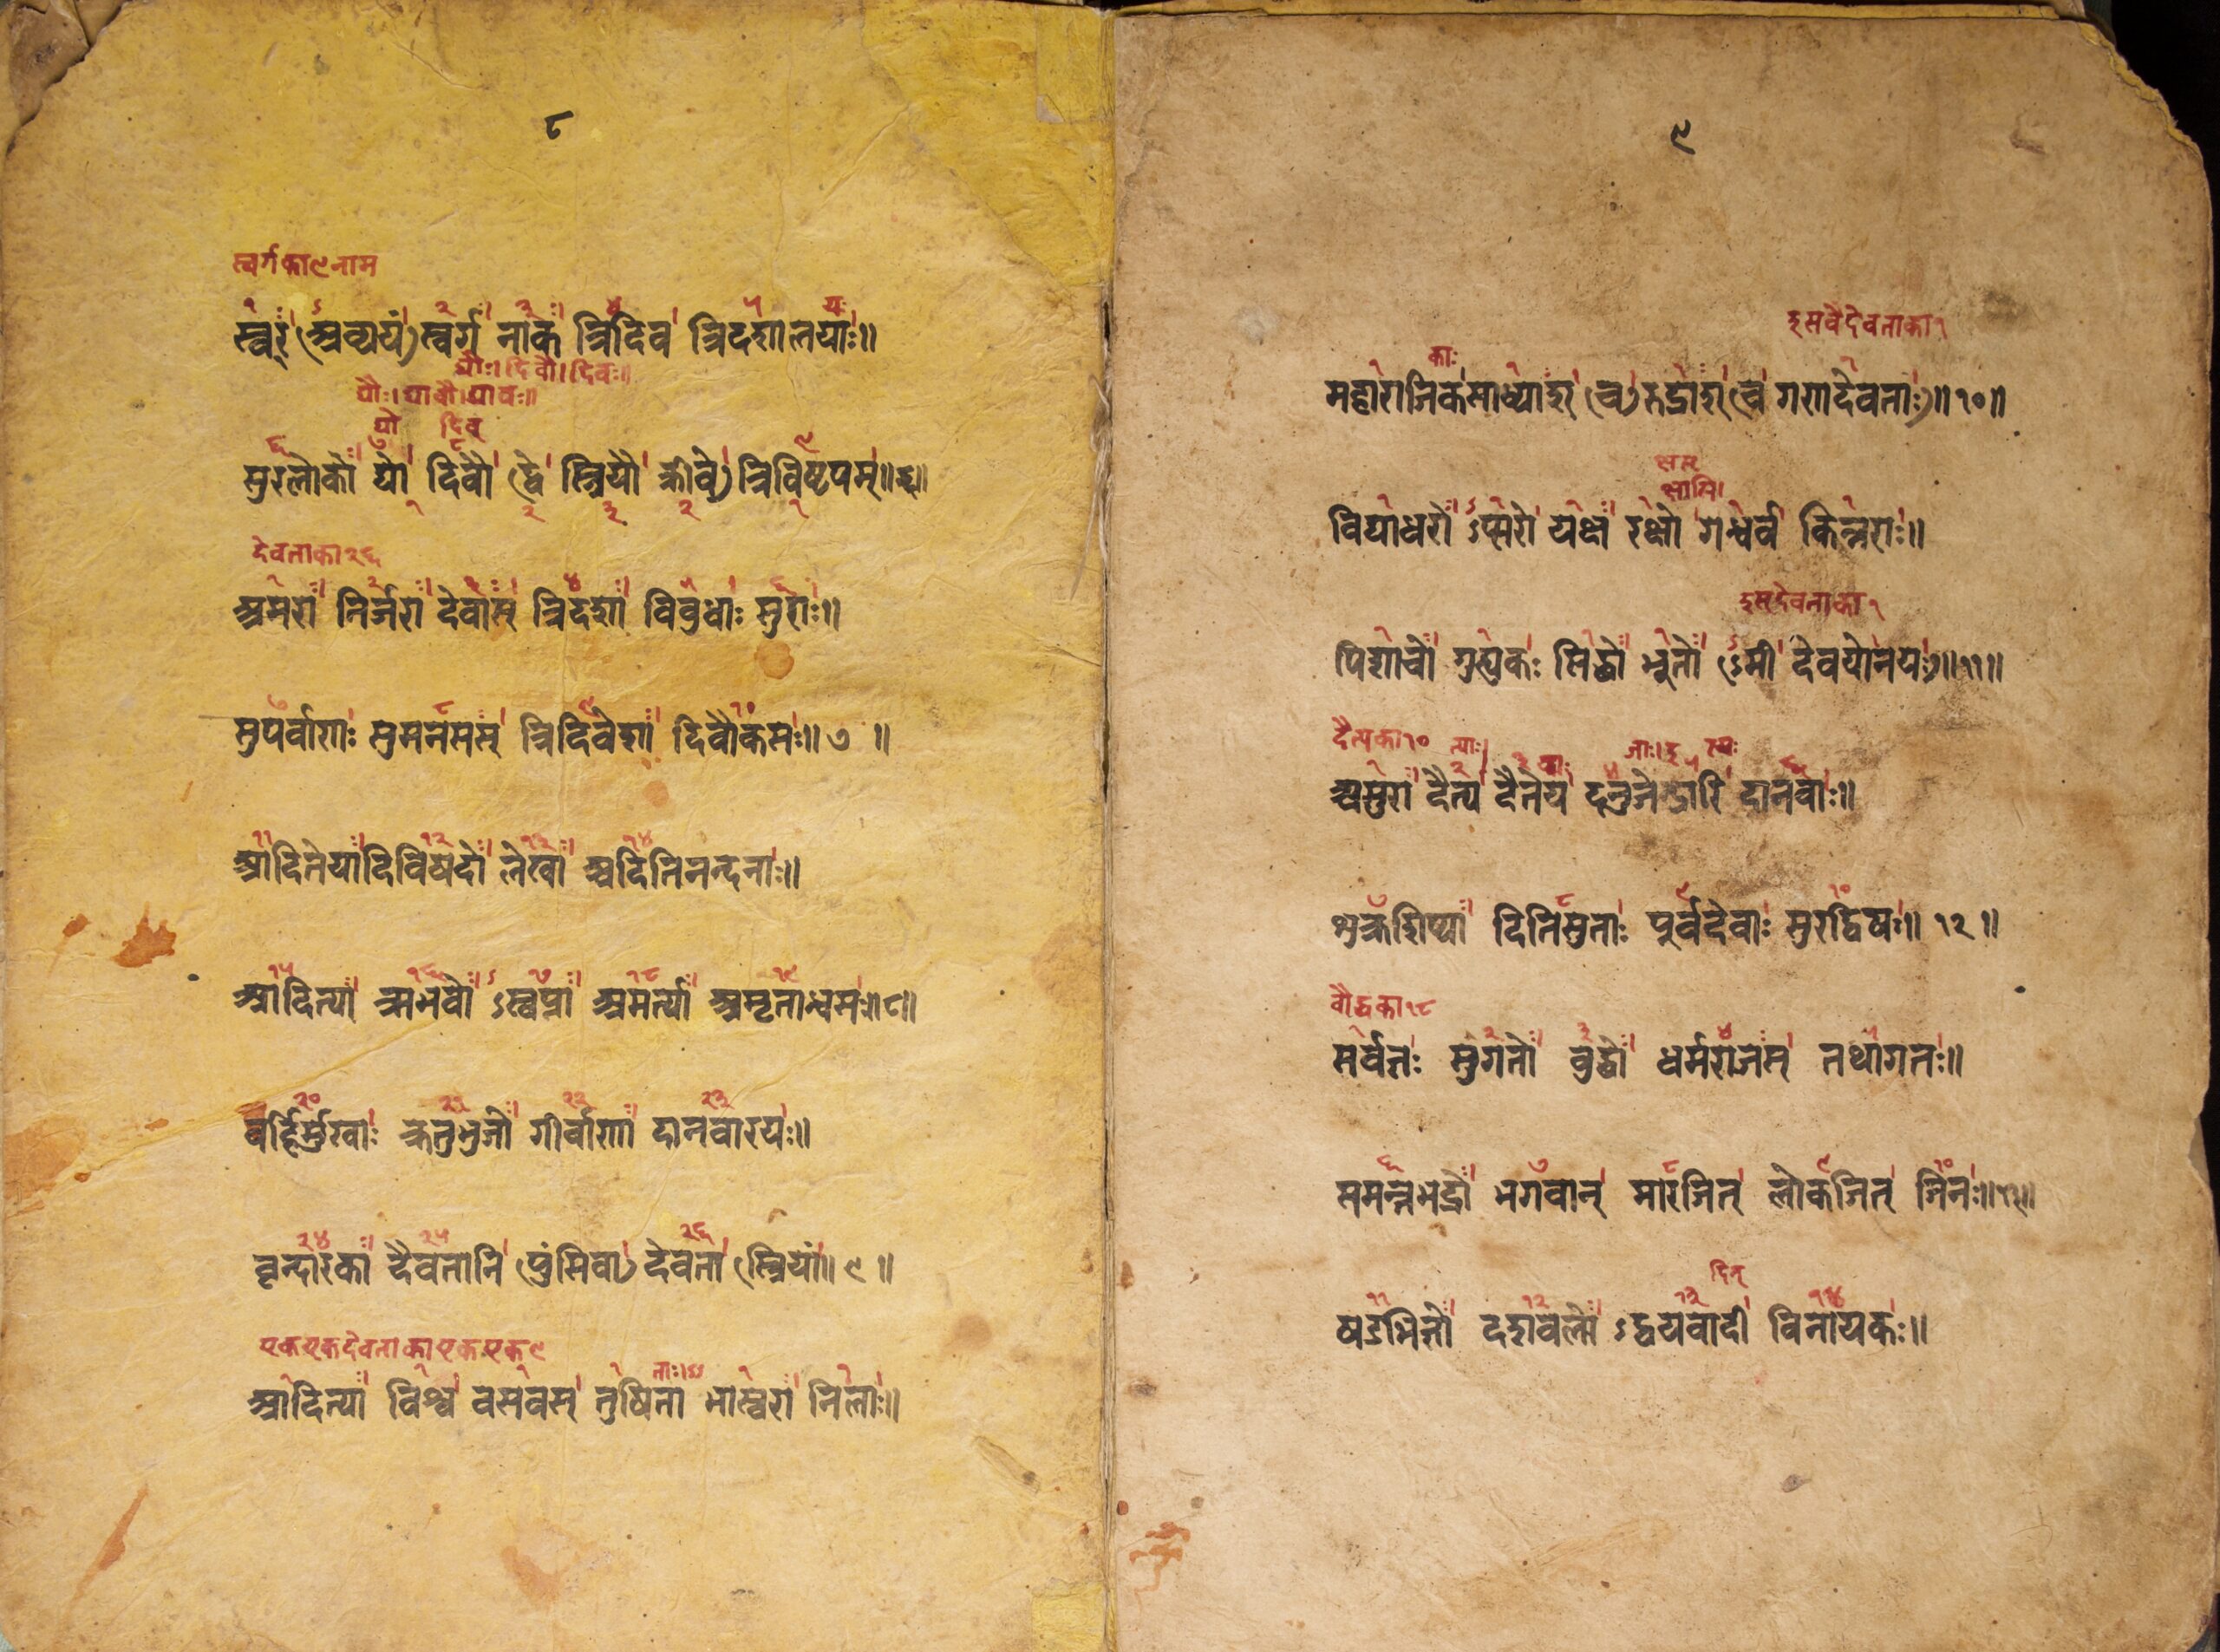 ८
स्वर्गका९नाम
स्वर् (अव्ययं) स्वर्ग नाक त्रिदिव त्रिदशालयाः॥
द्यौः। दिवौ। दिवः॥
द्यौः। द्यावौ। द्यावः॥
द्यो दिव्
सुरलोको द्यो दिवौ (द्वे स्त्रियौ क्लीवे) त्रिविष्टपम्॥६॥
देवताका२६
अमरा निर्जरा देवास् त्रिदशा विबुधाः सुराः॥
सुपर्वाणः सुमनसस् त्रिदिवेशा दिवौकसः॥ ७ ॥
आदितेया दिविषदो लेखा अदितिनन्दनाः॥
आदित्या ऋभवो ऽस्वप्ना अमर्त्या अमृतान्धसः॥८॥
वर्हिर्मुखाः क्रतुभुजो गीर्वाणा दानवारयः॥
वृन्दारका दैवतानि (पुंसिवा) देवता (स्त्रियां॥ ९ ॥
एकएकदेवताकाएकएक९
आदित्या विश्व वसवस् तुषिता भास्वरा निलाः॥
९
इसवैदेवताका१
काः
महाराजिकसाध्याश् (च) रुद्राश् (च गणदेवताः)॥१०॥
विद्याधरो ऽप्सरो यक्ष रक्षो गन्धर्व किन्नराः॥
इसदेवताका१
पिशाचो गुह्यकः सिद्धो भूतो (ऽमी देवयोनयः)॥११॥
दैत्यका१०
असुरा दैत्य दैतेय दनुजेन्द्रारि दानवाः॥
शुक्रशिष्या दितिसुताः पूर्वदेवाः सुरद्विषः॥ १२ ॥
वौद्धका१८
सर्वज्ञः सुगतो वुद्धो धर्मराजस् तथागतः॥
समन्तभद्रो भगवान् मारजित् लोकजित् जिनः॥१३॥
दिन्
षडभिज्ञो दशवलो ऽद्वयवादी विनायकः॥